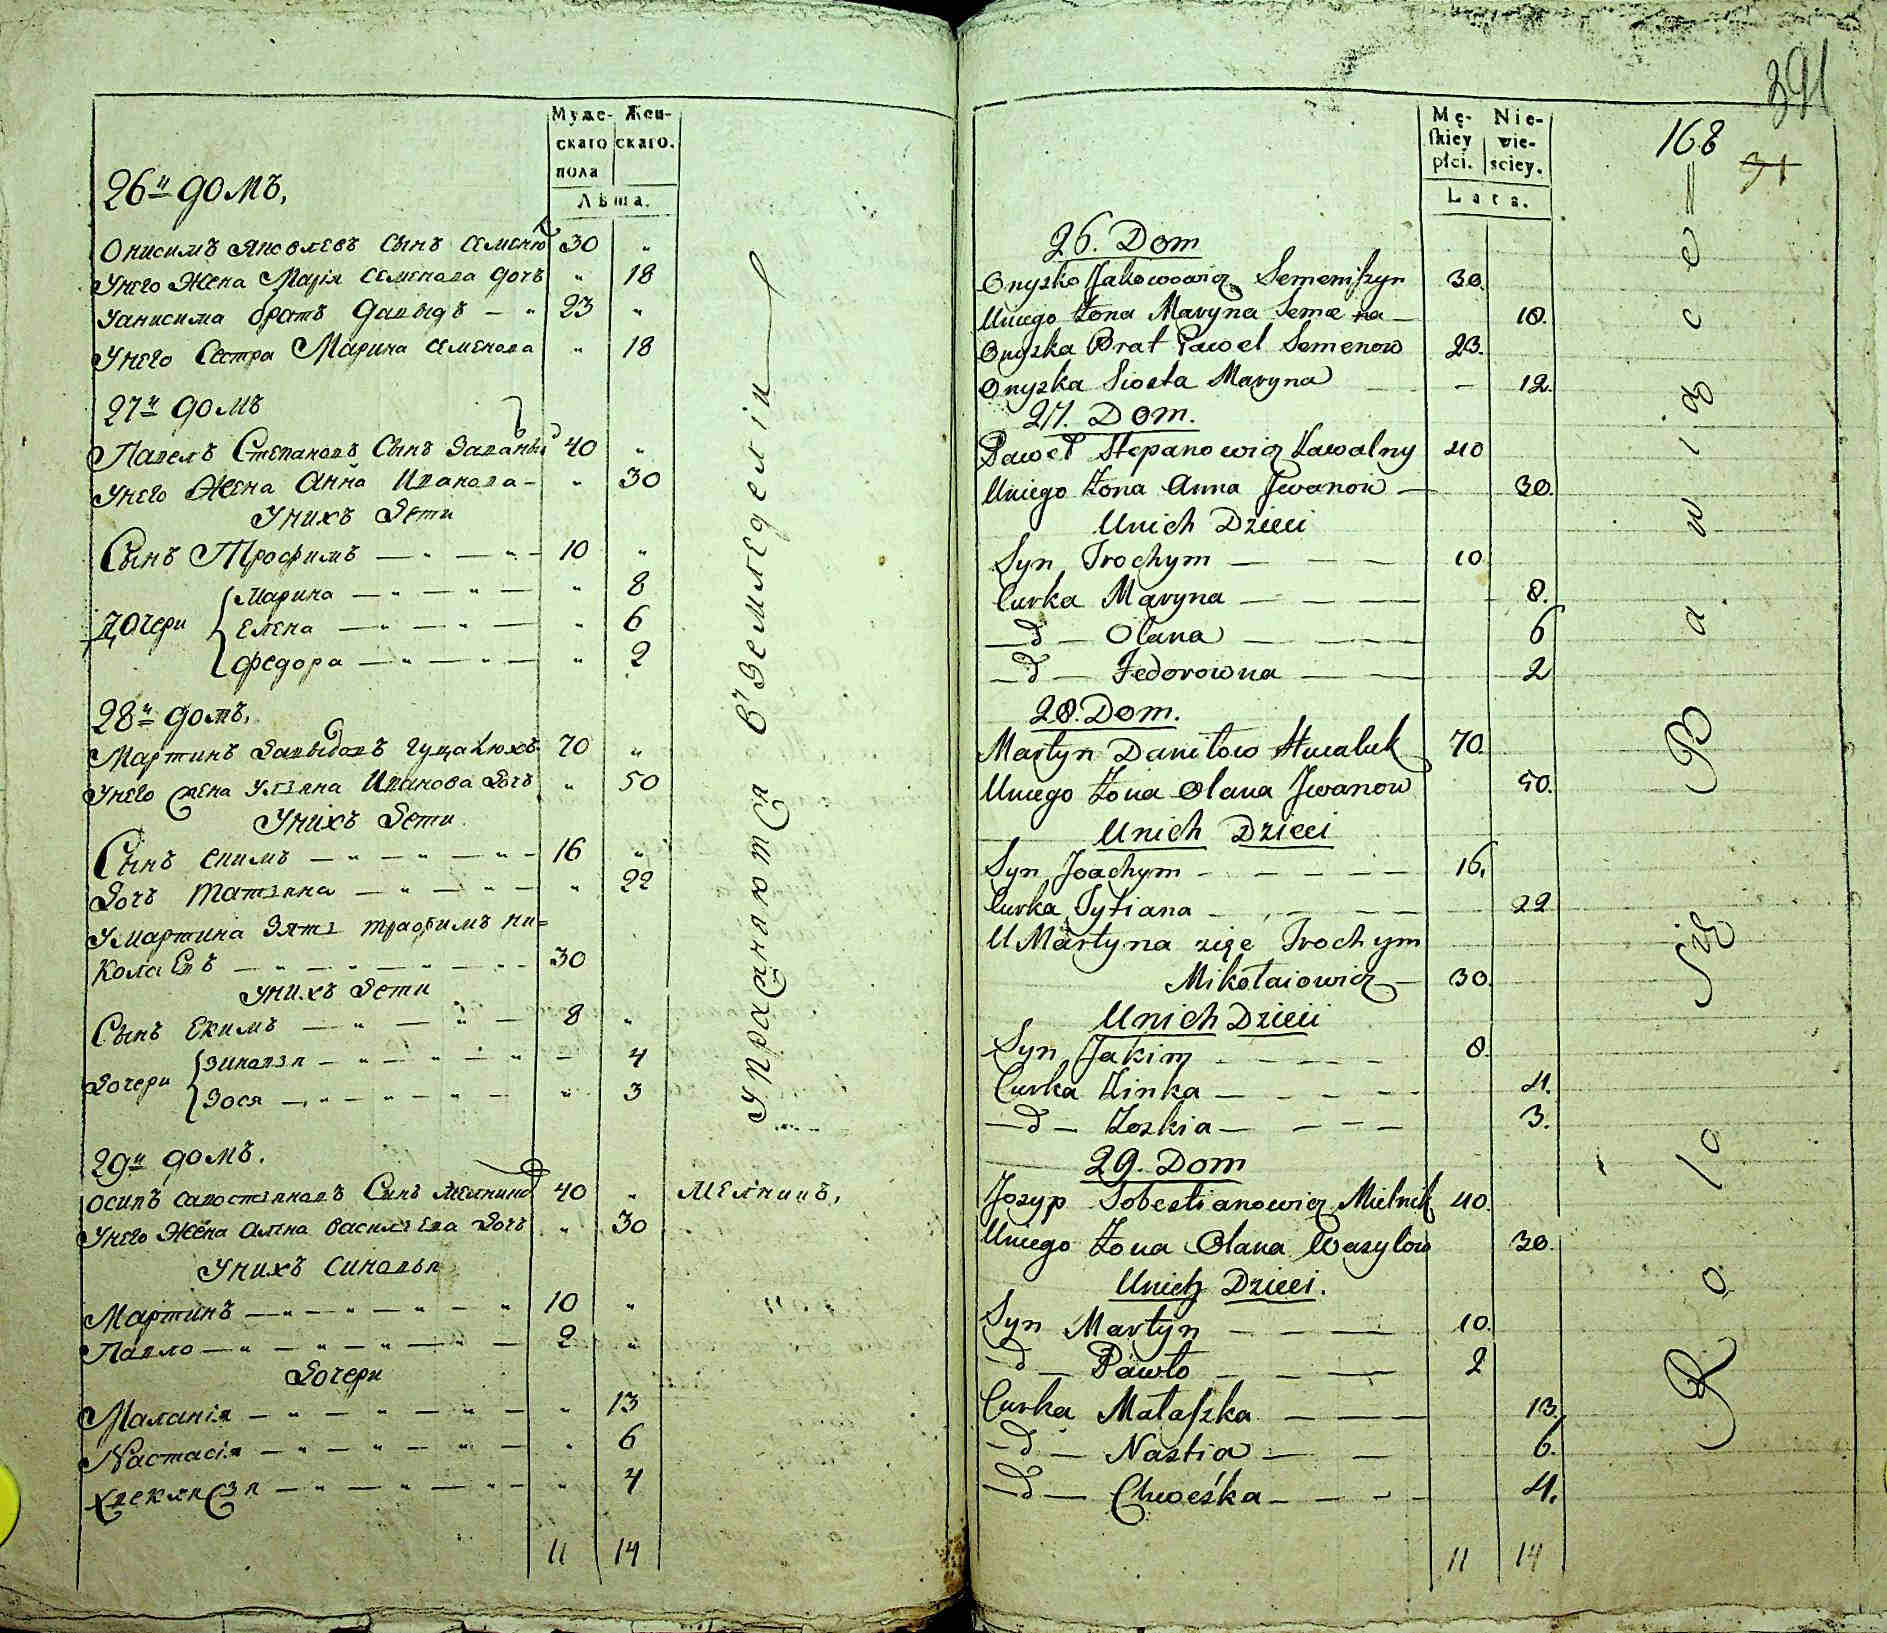 Муже-
скаго
пола
Жен-
скаго.
Лѣта.
26й домъ,
Онисимъ Яковлевъ сынъ 30 "
Унего Жена Марія Семенова дочь " 18
Уанисима братъ Давыдъ — " 23 "
Унего Сестра Марина Семенова " 18
27й домъ
Павелъ Степановъ Сынъ 40 "
Унего Жена Анна Иванова - " 30
Унихъ Дети
Сынъ Трофимъ — " — " - 10 "
Дочери
Марина — " — " — " 8
Елена — " — " — " 6
Федора — " — " — " 2
28й домъ,
Мартинъ Давыдовъ 70 "
Унего Жена Уляна Иванова Дочь " 50
Унихъ Дети
Сынъ Екимъ — " — " — " - 16 "
Дочь Татяна — " — " - " 22
Умартина Зять Трофимъ Ни=
колаевъ — " — " — " - 30
Унихъ Дети
Сынъ Екимъ — " — " — 8 "
Дочери
— " — " — " - 4
Зося — " — " — " — " 3
29й домъ.
Осипъ Савостяновъ Сынъ 40 " Мелникъ,
Унего Жена Алена Васильева Дочь " 30
Унихъ Синовья
Мартинъ — " — " — " — " 10 "
Павло — " — " — " — " — 2 "
Дочери
Маланія — " — " — " — " 13
Настасія — " — " — " — " 6
— " — " — " - " 4
11 14
Упражняются въ земледеліи
391
168
31
Mę-
skiey
płci.
Nie-
wie-
sciey.
Lata.
26. Dom
Onyszko Jakowowicz Semeniszyn 30.
Uniego Żona Maryna Semena — 18.
Onyszka Brat Paweł Semenow 23.
Onyszka Siosta Maryna — - 12.
27. Dom.
Paweł Stepanowicz Kawalny 40
Uniego Żona Anna Jwanow — 30.
Unich Dzieci
Syn Trochym — — — 10
Curka Maryna — — — 8.
—d— Olana — — — 6
—d— Fedorowna — — 2
28. Dom.
Martyn Daniłow 70.
Uniego Żona Olana Jwanow 50.
Unich Dzieci
Syn Joachym - - — — — 16.
Curka Tytiana - - — — 22
U Martyna zięc Trochym
Mikołaiowicz — 30.
Unich Dzieci
Syn Jakim - - - - 8.
Curka Zinka — - - - - 4.
—d— Zoskia — — — — 3.
29. Dom
Jozyp Sobestianowicz Mielnik 40.
Uniego Żona Olana Wasylow 30.
Unich Dzieci.
Syn Martyn — — — 10.
—d— Pawło - — — 2
Curka Małaszka — — — 13.
—d— Nastia — — — 6.
—d— Chweśka — — - - 4.
11 14
Rolo Się Bawią wszyscy